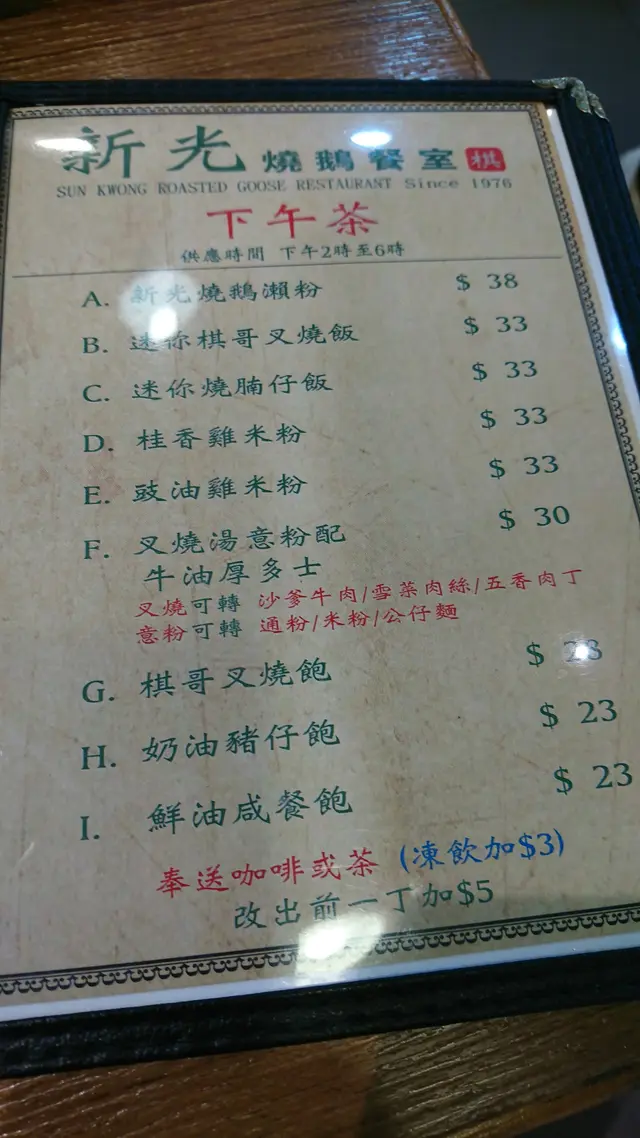 新光 燒鵝餐室 棋
SUN KWONG ROASTED GOOSE RESTAURANT Since 1976
下午茶
供應時間 下午2時至6時
A. 新光燒鵝瀨粉 $ 38
B. 迷你棋哥叉燒飯 $ 33
C. 迷你燒腩仔飯 $ 33
D. 桂香雞米粉 $ 33
E. 豉油雞米粉 $ 33
F. 叉燒湯意粉配 $ 30
牛油厚多士
叉燒可轉 沙爹牛肉/雪菜肉絲/五香肉丁
意粉可轉 通粉/米粉/公仔麵
G. 棋哥叉燒飽 $ 23
H. 奶油豬仔飽 $ 23
I. 鮮油咸餐飽 $ 23
奉送咖啡或茶 (凍飲加$3)
改出前一丁加$5